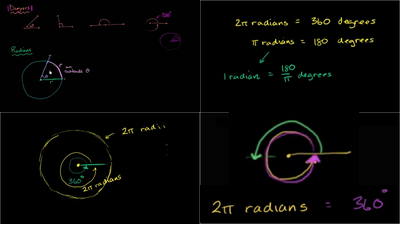 Degrees
360°
Radians
r
r
θ
subtends θ
2π radians = 360 degrees
π radians = 180 degrees
1 radian = 180/π degrees
2π radi
360°
2π radians
2π radians = 360°